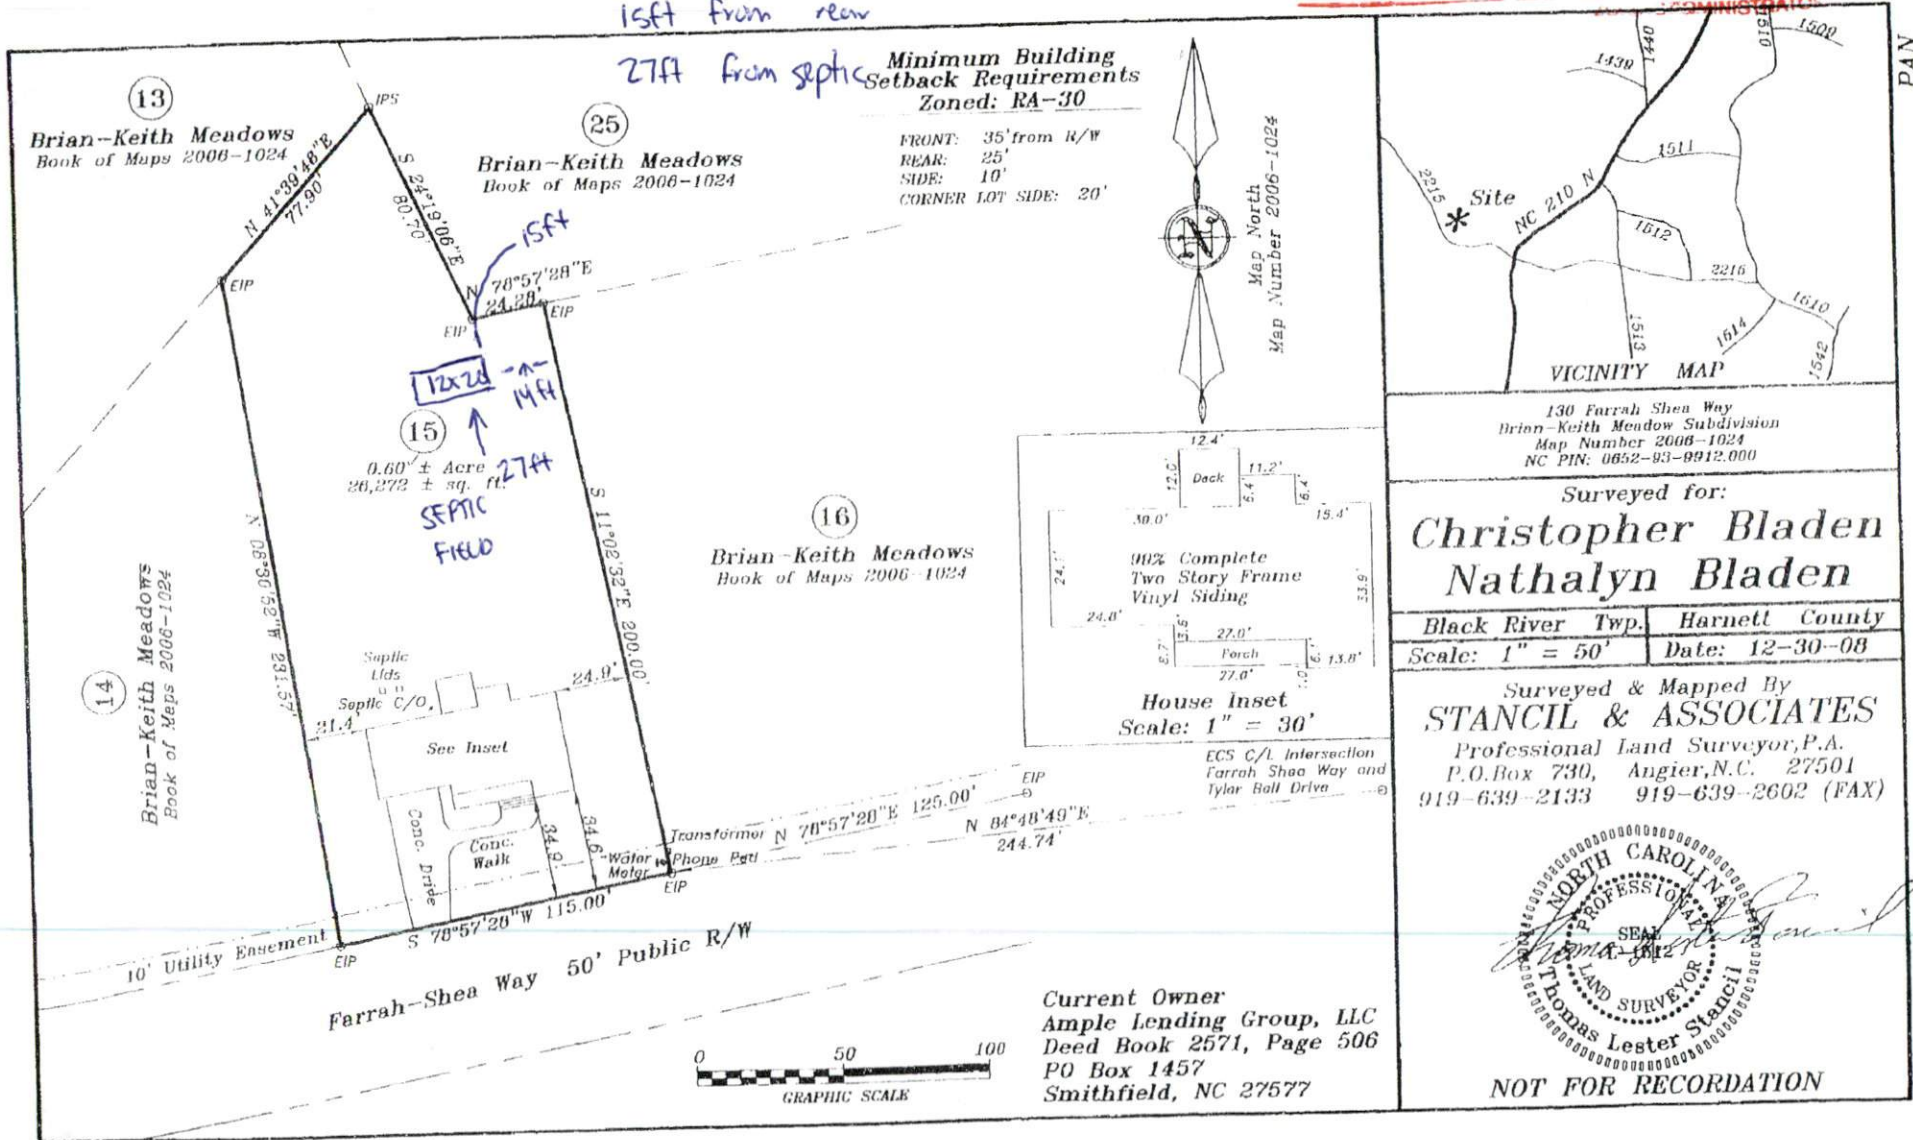 15ft from rear
27ft from septic
Minimum Building
Setback Requirements
Zoned: RA-30
FRONT: 35'from R/W
REAR: 25'
SIDE: 10'
CORNER LOT SIDE: 20'
13
Brian-Keith Meadows
Book of Maps 2006-1024
25
Brian-Keith Meadows
Book of Maps 2006-1024
IPS
N 41°39'48"E
77.90'
S 24°19'06"E
80.70'
15ft
N 78°57'28"E
24.28'
EIP
EIP
EIP
12x20
14ft
15
0.60 ± Acre
26,272 ± sq. ft.
27ft
SEPTIC
FIELD
S 11°02'32"E 200.00'
N 08°30'52"W 231.57'
16
Brian-Keith Meadows
Book of Maps 2006-1024
14
Brian-Keith Meadows
Book of Maps 2006-1024
Map North
Map Number 2006-1024
Septic
Lids
Septic C/O
21.4'
24.9'
See Inset
Conc. Drive
Conc.
Walk
34.9'
34.6'
Water
Meter
Transformer
Phone Ped
N 78°57'28"E 125.00'
EIP
N 84°48'49"E
244.74'
EIP
S 78°57'28"W 115.00'
EIP
10' Utility Easement
Farrah-Shea Way 50' Public R/W
12.4'
12.0'
Deck
11.2'
6.4'
6.4'
30.0'
15.4'
24.1'
99% Complete
Two Story Frame
Vinyl Siding
33.9'
24.8'
27.0'
Porch
8.7'
27.0'
1.0'
13.8'
House Inset
Scale: 1" = 30'
ECS C/L Intersection
Farrah Shea Way and
Tylar Ball Drive
0 50 100
GRAPHIC SCALE
Current Owner
Ample Lending Group, LLC
Deed Book 2571, Page 506
PO Box 1457
Smithfield, NC 27577
ADMINISTRATOR
PAN
1440
1510
1509
1439
1511
2215
Site
NC 210 N
1512
2216
1513
1610
1614
1542
VICINITY MAP
130 Farrah Shea Way
Brian-Keith Meadow Subdivision
Map Number 2006-1024
NC PIN: 0652-93-9912.000
Surveyed for:
Christopher Bladen
Nathalyn Bladen
Black River Twp. Harnett County
Scale: 1" = 50' Date: 12-30-08
Surveyed & Mapped By
STANCIL & ASSOCIATES
Professional Land Surveyor,P.A.
P.O.Box 730, Angier,N.C. 27501
919-639-2133 919-639-2602 (FAX)
NORTH CAROLINA
PROFESSIONAL
SEAL
LAND SURVEYOR
Thomas Lester Stancil
NOT FOR RECORDATION